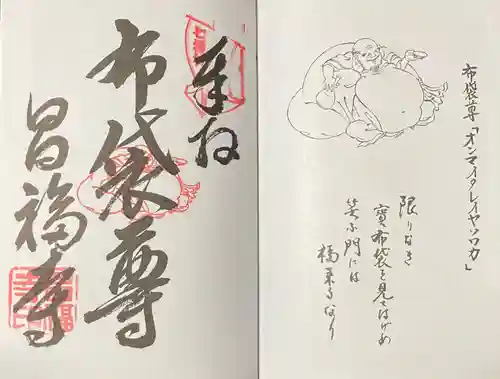 奉拝
布袋尊
昌福寺
布袋尊「オンマイタレイヤソワカ」
限りなき
寳布袋を見てはげめ
笑ふ門には
福来るなり